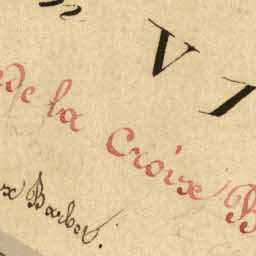 n VI
de la Croix B
ux Barbet.